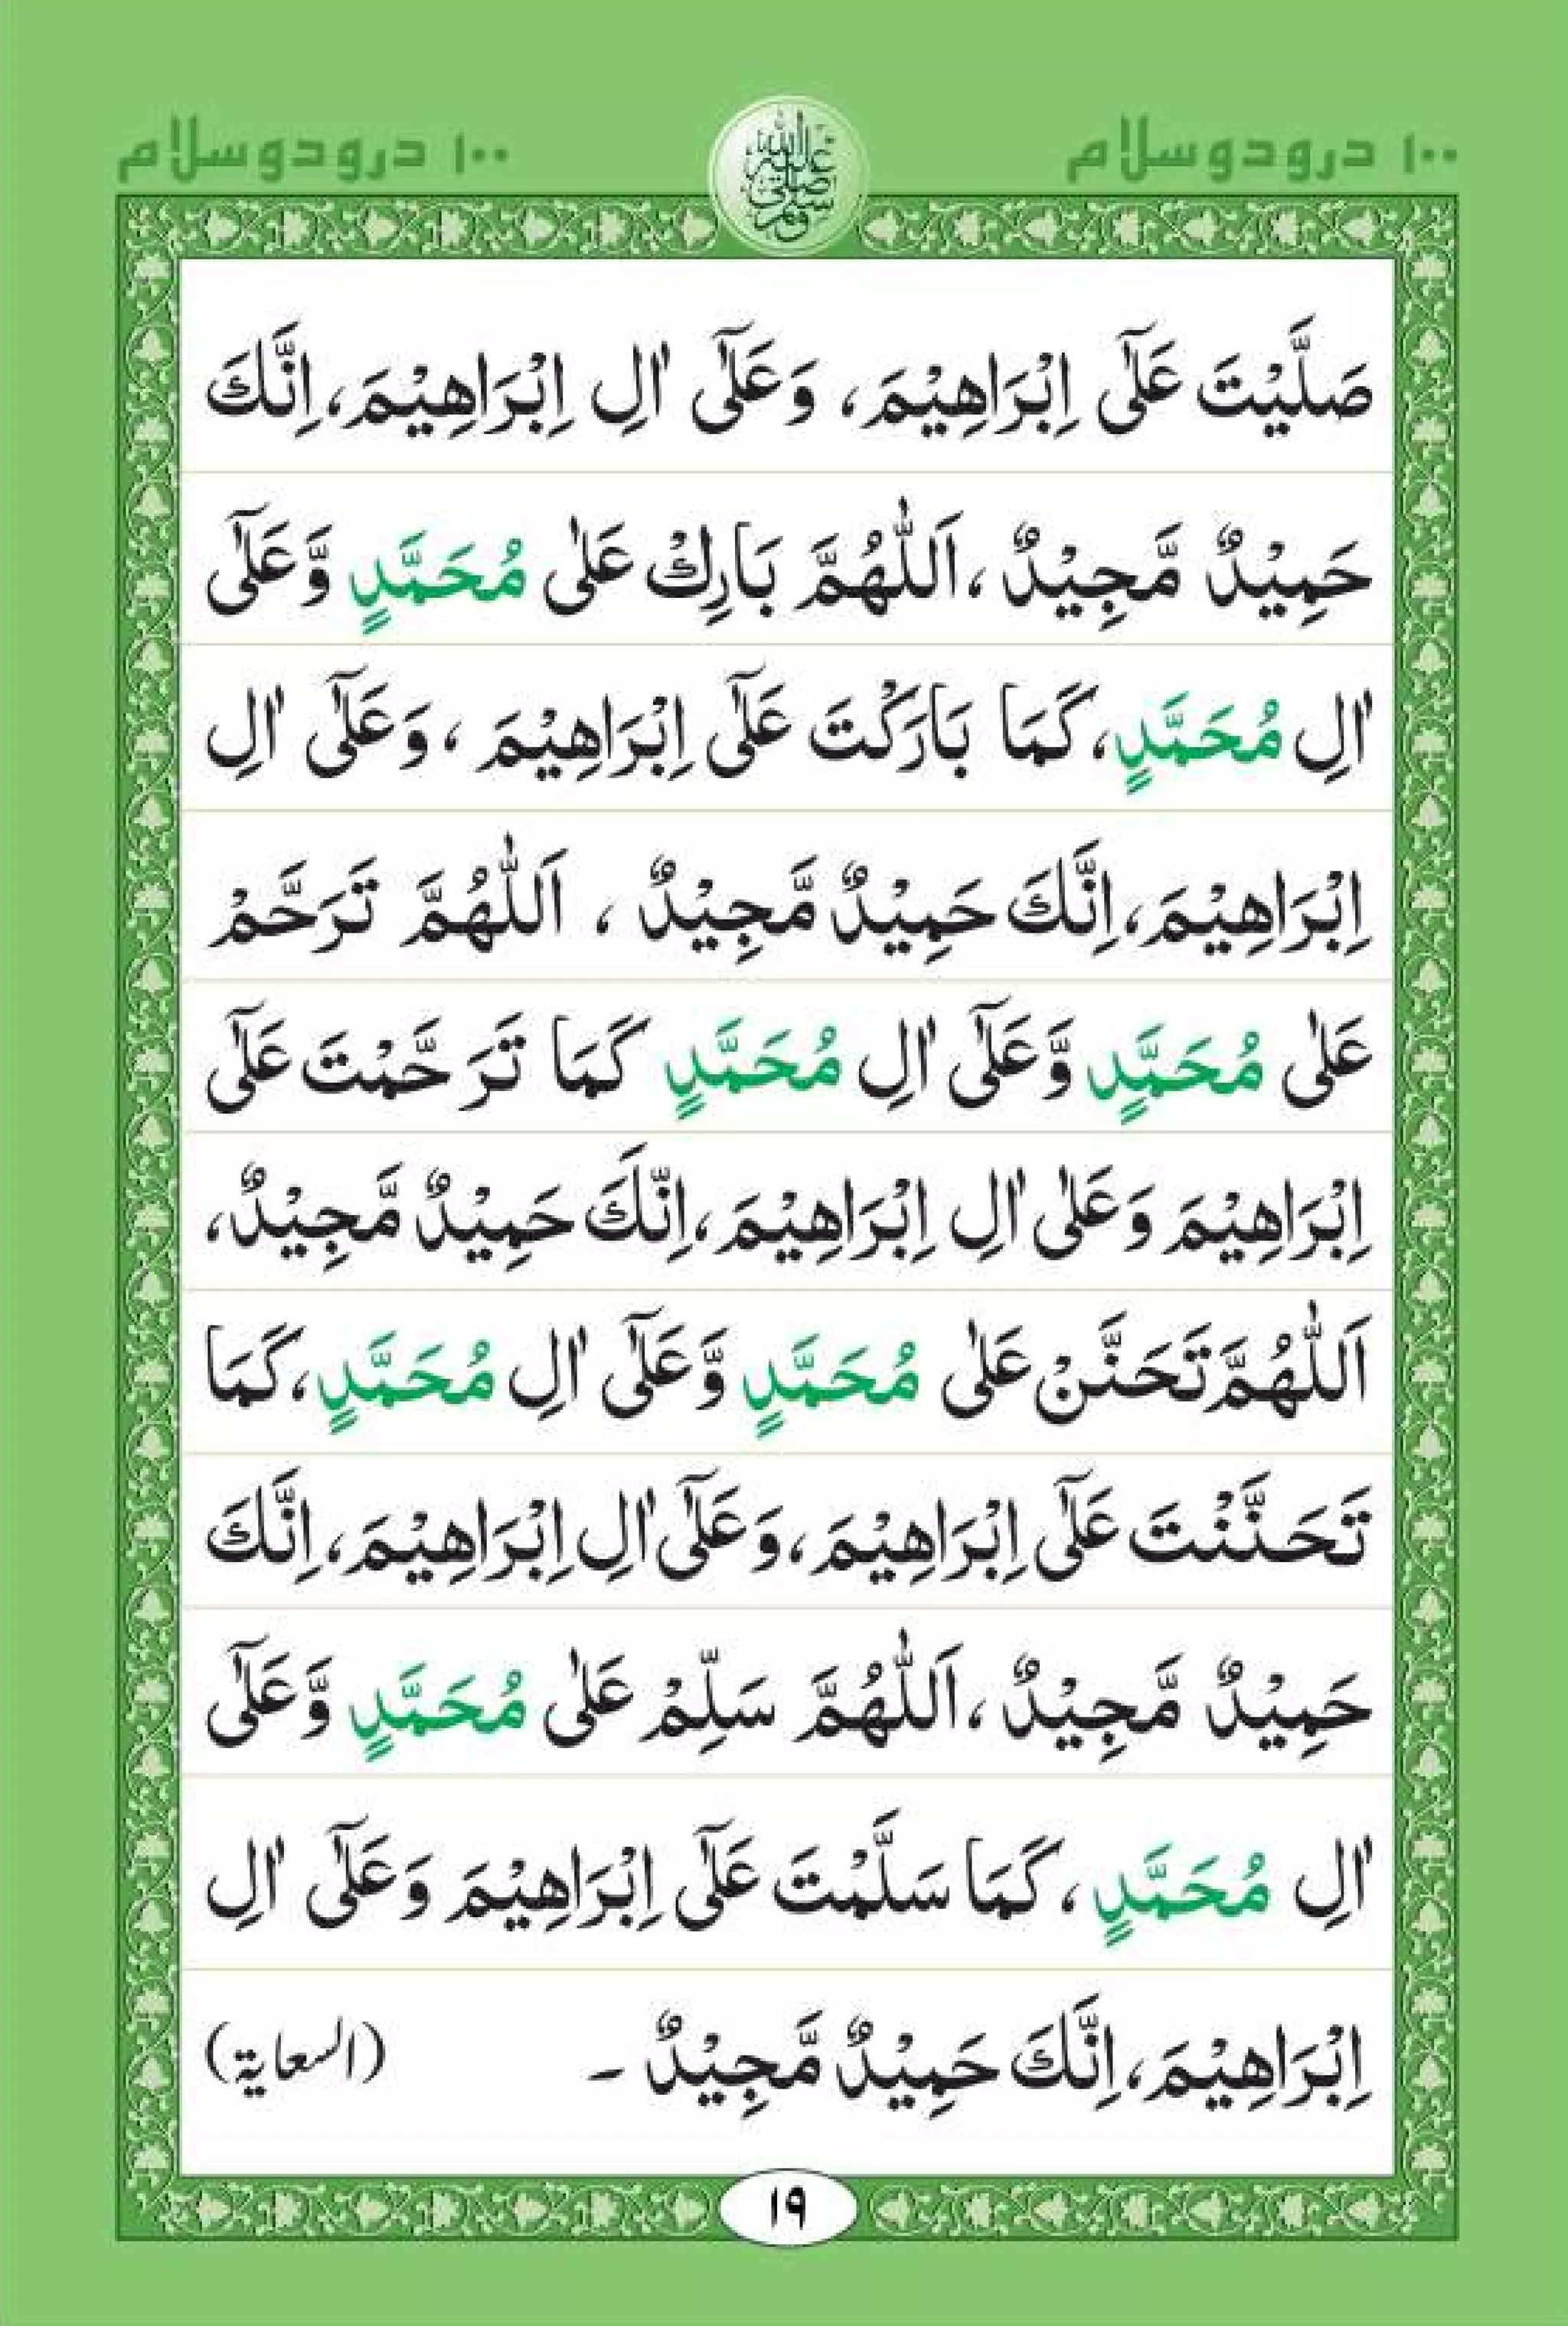 ۱۰۰ درود و سلام
صلى الله عليه وسلم
۱۰۰ درود و سلام
صَلَّيْتَ عَلٰٓى اِبْرَاهِيْمَ، وَعَلٰٓى اٰلِ اِبْرَاهِيْمَ، اِنَّكَ
حَمِيْدٌ مَّجِيْدٌ، اَللّٰهُمَّ بَارِكْ عَلٰى مُحَمَّدٍ وَّعَلٰٓى
اٰلِ مُحَمَّدٍ، كَمَا بَارَكْتَ عَلٰٓى اِبْرَاهِيْمَ، وَعَلٰٓى اٰلِ
اِبْرَاهِيْمَ، اِنَّكَ حَمِيْدٌ مَّجِيْدٌ، اَللّٰهُمَّ تَرَحَّمْ
عَلٰى مُحَمَّدٍ وَّعَلٰٓى اٰلِ مُحَمَّدٍ كَمَا تَرَحَّمْتَ عَلٰٓى
اِبْرَاهِيْمَ وَعَلٰى اٰلِ اِبْرَاهِيْمَ، اِنَّكَ حَمِيْدٌ مَّجِيْدٌ،
اَللّٰهُمَّ تَحَنَّنْ عَلٰى مُحَمَّدٍ وَّعَلٰٓى اٰلِ مُحَمَّدٍ، كَمَا
تَحَنَّنْتَ عَلٰٓى اِبْرَاهِيْمَ، وَعَلٰٓى اٰلِ اِبْرَاهِيْمَ، اِنَّكَ
حَمِيْدٌ مَّجِيْدٌ، اَللّٰهُمَّ سَلِّمْ عَلٰى مُحَمَّدٍ وَّعَلٰٓى
اٰلِ مُحَمَّدٍ، كَمَا سَلَّمْتَ عَلٰٓى اِبْرَاهِيْمَ وَعَلٰٓى اٰلِ
اِبْرَاهِيْمَ، اِنَّكَ حَمِيْدٌ مَّجِيْدٌ ۔ (السعاية)
۱۹